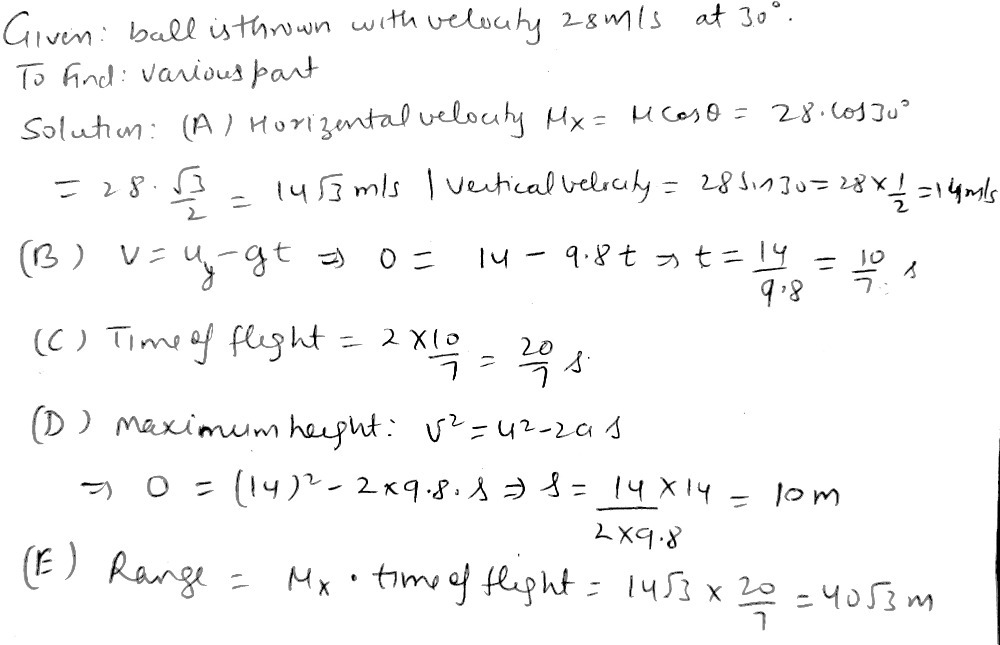 Given: ball is thrown with velocity 28 m/s at 30°.
To find: various part
Solution: (A) Horizental velocity Mx = M cos θ = 28. cos 30°
= 28. √3/2 = 14√3 m/s | Vertical velocity = 28 sin 30 = 28 × 1/2 = 14 m/s
(B) V = uy - gt ⇒ 0 = 14 - 9.8 t → t = 14/9.8 = 10/7 s
(C) Time of flight = 2 × 10/7 = 20/7 s.
(D) maximum height: v² = u² - 2a s
⇒ 0 = (14)² - 2 × 9.8. s ⇒ s = 14 × 14/2 × 9.8 = 10 m
(E) Range = Mx • time of flight = 14√3 × 20/7 = 40√3 m